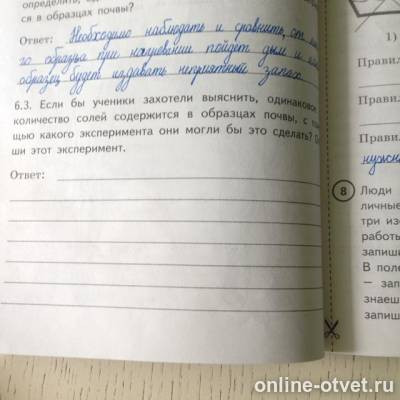 определить,
ся в образцах почвы?
Ответ: Необходимо наблюдать и сравнить, от
го образца при нагревании пойдет дым и
образец будет издавать неприятный запах.
6.3. Если бы ученики захотели выяснить, одинаковое
количество солей содержится в образцах почвы, с
щью какого эксперимента они могли бы это сделать?
ши этот эксперимент.
Ответ:
1)
Правил
Правил
Правил
нужн
8 Люди
личные
три из
работы
запиши
В поле
– зап
знаеш
запиш
online-otvet.ru